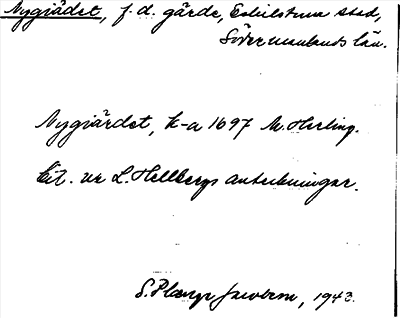 Nygiädet, f.d. gärde, Eskilstuna stad,
Södermanlands län.
Nygiärdet, k-a 1697 M. Herling.
Cit. ur L. Hellbergs anteckningar.
S. Plænge Jacobson, 1943.